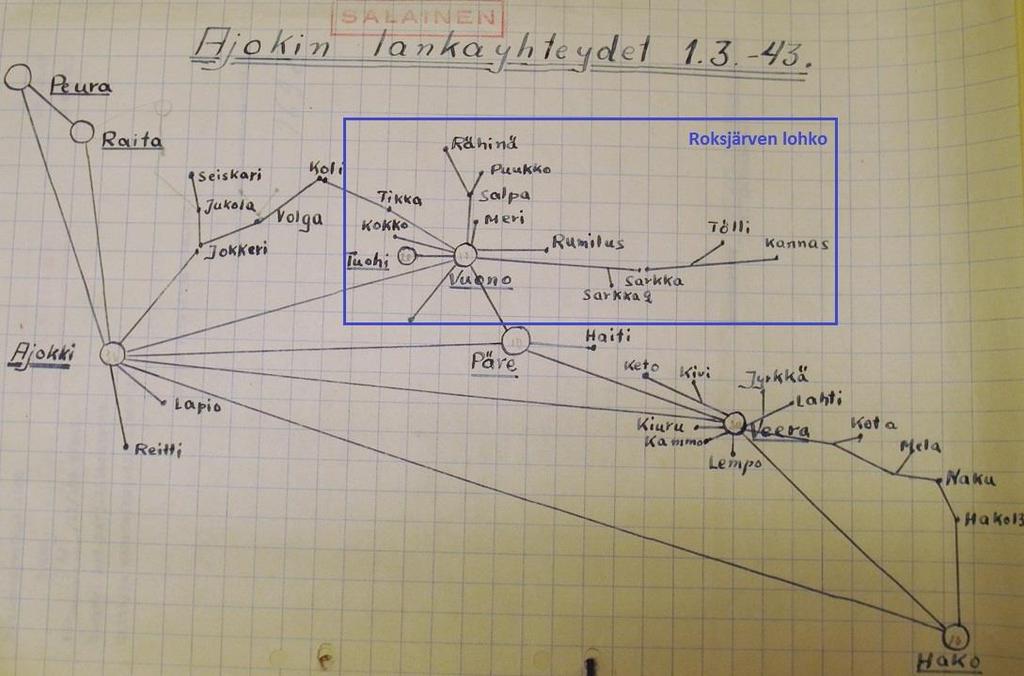 SALAINEN
Ajokin lankayhteydet 1.3.-43.
Peura
Raita
Roksjärven lohko
Rähinä
Puukko
Seiskari
Koli
Salpa
Tikka
Jukola
Volga
Meri
Kokko
Tölli
Jokkeri
Rumilus
Kannas
Tuohi
Vuono
Särkkä
Särkkä 2
Ajokki
Haiti
Päre
Keto
Kivi
Jyrkkä
Lahti
Lapio
Kiuru
Veera
Kota
Kammo
Mela
Reitti
Lempo
Naku
Hako13
Hako